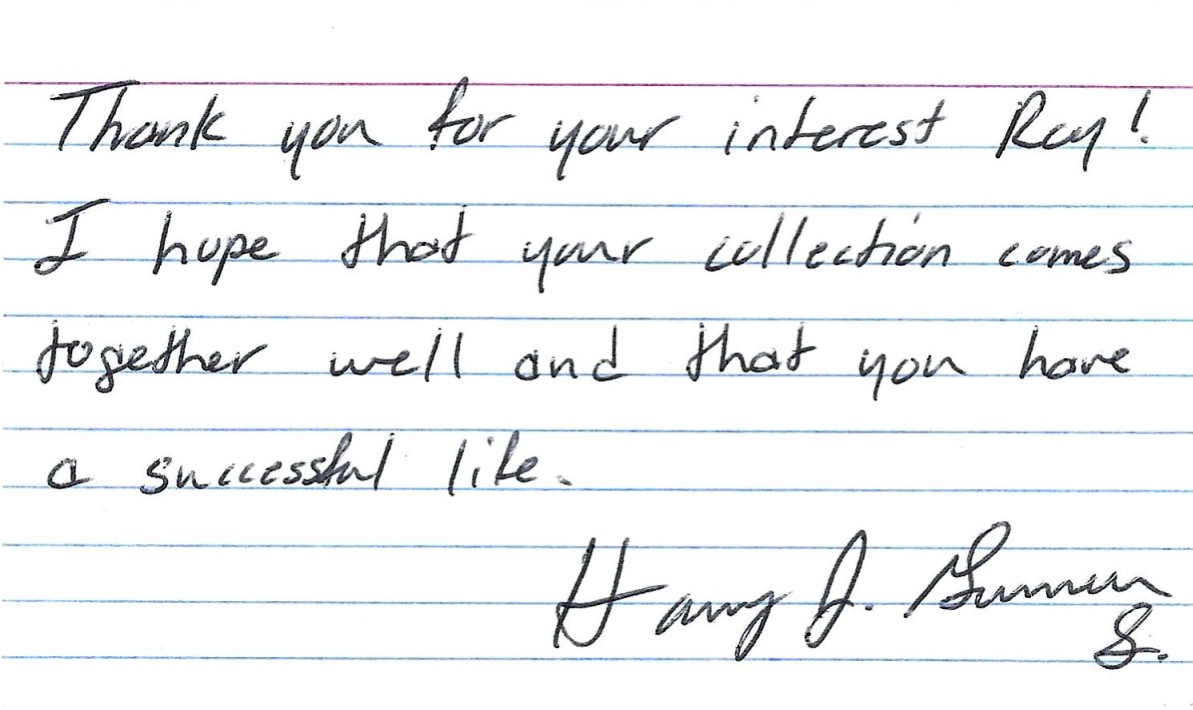 Thank you for your interest Ray!
I hope that your collection comes
together well and that you have
a successful life.
Harry J.